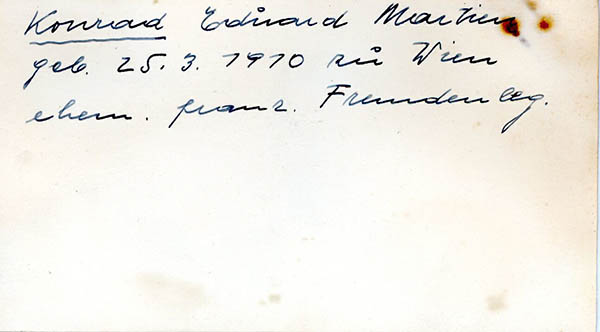 Konrad Eduard Martin
geb. 25. 3. 1910 zu Wien
ehem. franz. Fremdenleg.